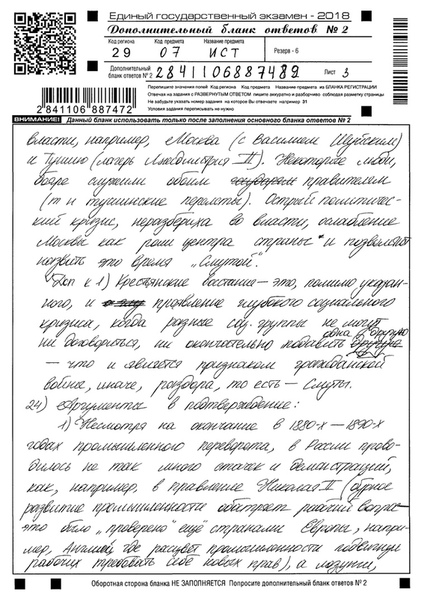 Единый государственный экзамен - 2018
Дополнительный бланк ответов № 2
Код региона Код предмета Название предмета
29 07 ИСТ Резерв - 6
Дополнительный бланк ответов № 2 2841106887489 Лист 3
2 841106 887472
Перепишите значения полей Код региона, Код предмета, Название предмета из БЛАНКА РЕГИСТРАЦИИ
Отвечая на задания с РАЗВЕРНУТЫМ ОТВЕТОМ пишите аккуратно и разборчиво, соблюдая разметку страницы
Не забудьте указать номер задания, на которое Вы отвечаете, например 31
Условия задания переписывать не нужно
ВНИМАНИЕ! Данный бланк использовать только после заполнения основного бланка ответов № 2
власти, например, Москва (с Василием Шуйским)
и Тушино (лагерь Лжедмитрия II). Некоторые люди,
бояре служили обоим правителям
(т н тушинские перелёты). Острый политичес-
кий кризис, неразбериха во власти, ослабление
Москвы как роли центра страны и позволяет
назвать это время „Смутой".
Доп к 1) Крестьянские восстания – это, помимо указан-
ного, и проявление глубокого социального
кризиса, когда разные соц. группы не могут
ни договориться, ни окончательно подавить одна другую
– что и является признаком гражданской
войны, иначе, раздора, то есть – Смуты.
24) Аргументы в подтверждение:
1) Несмотря на окончание в 1880-х – 1890-х
годах промышленного переворота, в России прово-
дилось не так много стачек и демонстраций,
как, например, в правление Николая II (бурное
развитие промышленности обостряет рабочий вопрос
это было „проверено" ещё странами Европы, напри-
мер, Англией, где расцвет промышленности
рабочих требовать себе новых прав), а лозунги,
Оборотная сторона бланка НЕ ЗАПОЛНЯЕТСЯ Попросите дополнительный бланк ответов № 2